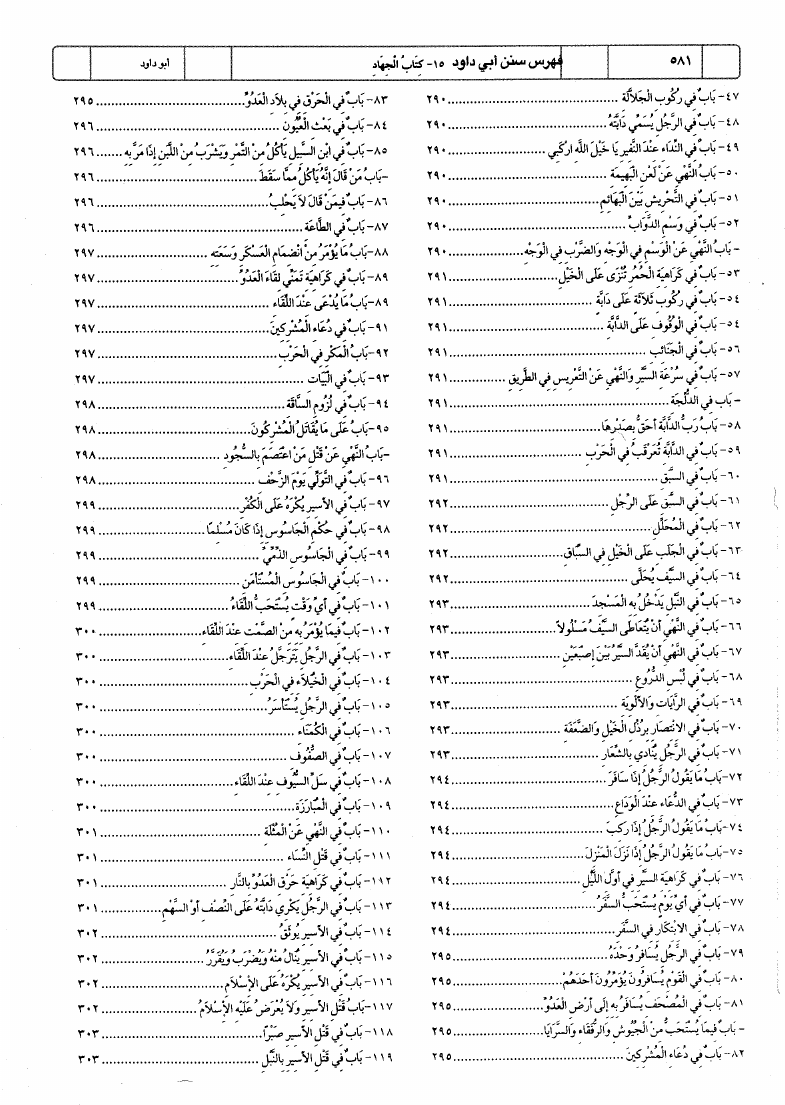 ٥٨١ فهرس سنن أبي داود ١٥- كتَابُ الْجهَاد أبو داود
٤٧- بَابٌ في رُكُوب الْجَلاَّلَة ........ ٢٩٠
٤٨- بَابٌ في الرَّجُل يُسَمِّي دَابَّتَهُ ........ ٢٩٠
٤٩- بَابٌ في النِّدَاء عنْدَ النَّفير يَا خَيْلَ اللَّه ارْكَبي ........ ٢٩٠
٥٠- بَابُ النَّهْي عَنْ لَعْن الْبَهيمَة ........ ٢٩٠
٥١- بَابٌ في التَّحْريش بَيْنَ الْبَهَائم ........ ٢٩٠
٥٢- بَابٌ في وَسْم الدَّوَابِّ ........ ٢٩٠
- بَابُ النَّهْي عَنْ الْوَسْم في الْوَجْه وَالضَّرْب في الْوَجْه ........ ٢٩٠
٥٣- بَابٌ في كَرَاهيَة الْحُمُر تُنْزَى عَلَى الْخَيْل ........ ٢٩١
٥٤- بَابٌ في رُكُوب ثَلاَثَة عَلَى دَابَّة ........ ٢٩١
٥٤- بَابٌ في الْوُقُوف عَلَى الدَّابَّة ........ ٢٩١
٥٦- بَابٌ في الْجَنَائب ........ ٢٩١
٥٧- بَابٌ في سُرْعَة السَّيْر وَالنَّهْي عَنْ التَّعْريس في الطَّريق ........ ٢٩١
- باب في الدُّلْجَة ........ ٢٩١
٥٨- بَابُ رَبُّ الدَّابَّة أَحَقُّ بصَدْرهَا ........ ٢٩١
٥٩- بَابٌ في الدَّابَّة تُعَرْقَبُ في الْحَرْب ........ ٢٩١
٦٠- بَابٌ في السَّبَق ........ ٢٩١
٦١- بَابٌ في السَّبَق عَلَى الرِّجْل ........ ٢٩٢
٦٢- بَابٌ في الْمُحَلِّل ........ ٢٩٢
٦٣- بَابٌ في الْجَلَب عَلَى الْخَيْل في السِّبَاق ........ ٢٩٢
٦٤- بَابٌ في السَّيْف يُحَلَّى ........ ٢٩٢
٦٥- بَابٌ في النَّبْل يَدْخُلُ به الْمَسْجدَ ........ ٢٩٣
٦٦- بَابٌ في النَّهْي أَنْ يُتَعَاطَى السَّيْفُ مَسْلُولاً ........ ٢٩٣
٦٧- بَابٌ في النَّهْي أَنْ يُقَدَّ السَّيْرُ بَيْنَ إصْبَعَيْن ........ ٢٩٣
٦٨- بَابٌ في لُبْس الدُّرُوع ........ ٢٩٣
٦٩- بَابٌ في الرَّايَات وَالأَلْويَة ........ ٢٩٣
٧٠- بَابٌ في الانْتصَار برُذُل الْخَيْل وَالضَّعَفَة ........ ٢٩٣
٧١- بَابٌ في الرَّجُل يُنَادي بالشِّعَار ........ ٢٩٣
٧٢- بَابُ مَا يَقُولُ الرَّجُلُ إذَا سَافَرَ ........ ٢٩٤
٧٣- بَابٌ في الدُّعَاء عنْدَ الْوَدَاع ........ ٢٩٤
٧٤- بَابُ مَا يَقُولُ الرَّجُلُ إذَا رَكبَ ........ ٢٩٤
٧٥- بَابُ مَا يَقُولُ الرَّجُلُ إذَا نَزَلَ الْمَنْزلَ ........ ٢٩٤
٧٦- بَابٌ في كَرَاهيَة السَّيْر في أَوَّل اللَّيْل ........ ٢٩٤
٧٧- بَابٌ في أَيِّ يَوْم يُسْتَحَبُّ السَّفَرُ ........ ٢٩٤
٧٨- بَابٌ في الابْتكَار في السَّفَر ........ ٢٩٤
٧٩- بَابٌ في الرَّجُل يُسَافرُ وَحْدَهُ ........ ٢٩٥
٨٠- بَابٌ في الْقَوْم يُسَافرُونَ يُؤَمِّرُونَ أَحَدَهُمْ ........ ٢٩٥
٨١- بَابٌ في الْمُصْحَف يُسَافَرُ به إلَى أَرْض الْعَدُوِّ ........ ٢٩٥
- بَابٌ فيمَا يُسْتَحَبُّ منْ الْجُيُوش وَالرُّفَقَاء وَالسَّرَايَا ........ ٢٩٥
٨٢- بَابٌ في دُعَاء الْمُشْركينَ ........ ٢٩٥
٨٣- بَابٌ في الْحَرْق في بلاَد الْعَدُوِّ ........ ٢٩٥
٨٤- بَابٌ في بَعْث الْعُيُون ........ ٢٩٦
٨٥- بَابٌ في ابْن السَّبيل يَأْكُلُ منْ التَّمْر وَيَشْرَبُ منْ اللَّبَن إذَا مَرَّ به ........ ٢٩٦
-بَابُ مَنْ قَالَ إنَّهُ يَأْكُلُ ممَّا سَقَطَ ........ ٢٩٦
٨٦- بَابٌ فيمَن قَالَ لاَ يَحْلبُ ........ ٢٩٦
٨٧- بَابٌ في الطَّاعَة ........ ٢٩٦
٨٨-بَابُ مَا يُؤْمَرُ منْ انْضمَام الْعَسْكَر وَسَعَته ........ ٢٩٧
٨٩- بَابٌ في كَرَاهيَة تَمَنِّي لقَاءَ الْعَدُوِّ ........ ٢٩٧
٨٩- بَابُ مَا يُدْعَى عنْدَ اللِّقَاء ........ ٢٩٧
٩١- بَابٌ في دُعَاء الْمُشْركينَ ........ ٢٩٧
٩٢- بَابُ الْمَكْر في الْحَرْب ........ ٢٩٧
٩٣- بَابٌ في الْبَيَات ........ ٢٩٧
٩٤- بَابٌ في لُزُوم السَّاقَة ........ ٢٩٨
٩٥- بَابُ عَلَى مَا يُقَاتَلُ الْمُشْركُونَ ........ ٢٩٨
-بَابُ النَّهْي عَنْ قَتْل مَنْ اعْتَصَمَ بالسُّجُود ........ ٢٩٨
٩٦- بَابٌ في التَّوَلِّي يَوْمَ الزَّحْف ........ ٢٩٨
٩٧- بَابٌ في الأَسير يُكْرَهُ عَلَى الْكُفْر ........ ٢٩٩
٩٨- بَابٌ في حُكْم الْجَاسُوس إذَا كَانَ مُسْلمًا ........ ٢٩٩
٩٩- بَابٌ في الْجَاسُوس الذِّمِّيِّ ........ ٢٩٩
١٠٠- بَابٌ في الْجَاسُوس الْمُسْتَأْمَن ........ ٢٩٩
١٠١- بَابٌ في أَيِّ وَقْت يُسْتَحَبُّ اللِّقَاءُ ........ ٢٩٩
١٠٢- بَابٌ فيمَا يُؤْمَرُ به منْ الصَّمْت عنْدَ اللِّقَاء ........ ٣٠٠
١٠٣- بَابٌ في الرَّجُل يَتَرَجَّلُ عنْدَ اللِّقَاء ........ ٣٠٠
١٠٤- بَابٌ في الْخُيَلاَء في الْحَرْب ........ ٣٠٠
١٠٥- بَابٌ في الرَّجُل يُسْتَأْسَرُ ........ ٣٠٠
١٠٦- بَابٌ في الْكُمَنَاء ........ ٣٠٠
١٠٧- بَابٌ في الصُّفُوف ........ ٣٠٠
١٠٨- بَابٌ في سَلِّ السُّيُوف عنْدَ اللِّقَاء ........ ٣٠٠
١٠٩- بَابٌ في الْمُبَارَزَة ........ ٣٠٠
١١٠- بَابٌ في النَّهْي عَنْ الْمُثْلَة ........ ٣٠١
١١١- بَابٌ في قَتْل النِّسَاء ........ ٣٠١
١١٢- بَابٌ في كَرَاهيَة حَرْق الْعَدُوِّ بالنَّار ........ ٣٠١
١١٣- بَابٌ في الرَّجُل يَكْري دَابَّتَهُ عَلَى النِّصْف أَوْ السَّهْم ........ ٣٠١
١١٤- بَابٌ في الأَسير يُوثَقُ ........ ٣٠٢
١١٥- بَابٌ في الأَسير يُنَالُ منْهُ وَيُضْرَبُ وَيُقَرَّرُ ........ ٣٠٢
١١٦- بَابٌ في الأَسير يُكْرَهُ عَلَى الإسْلاَم ........ ٣٠٢
١١٧- بَابُ قَتْل الأَسير وَلاَ يُعْرَضُ عَلَيْه الإسْلاَمُ ........ ٣٠٢
١١٨- بَابٌ في قَتْل الأَسير صَبْرًا ........ ٣٠٣
١١٩- بَابٌ في قَتْل الأَسير بالنَّبْل ........ ٣٠٣